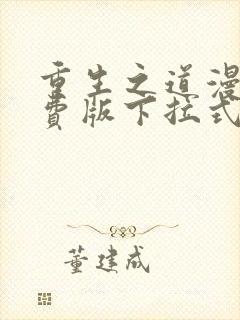 重生之道漫
费版下拉式
董建成